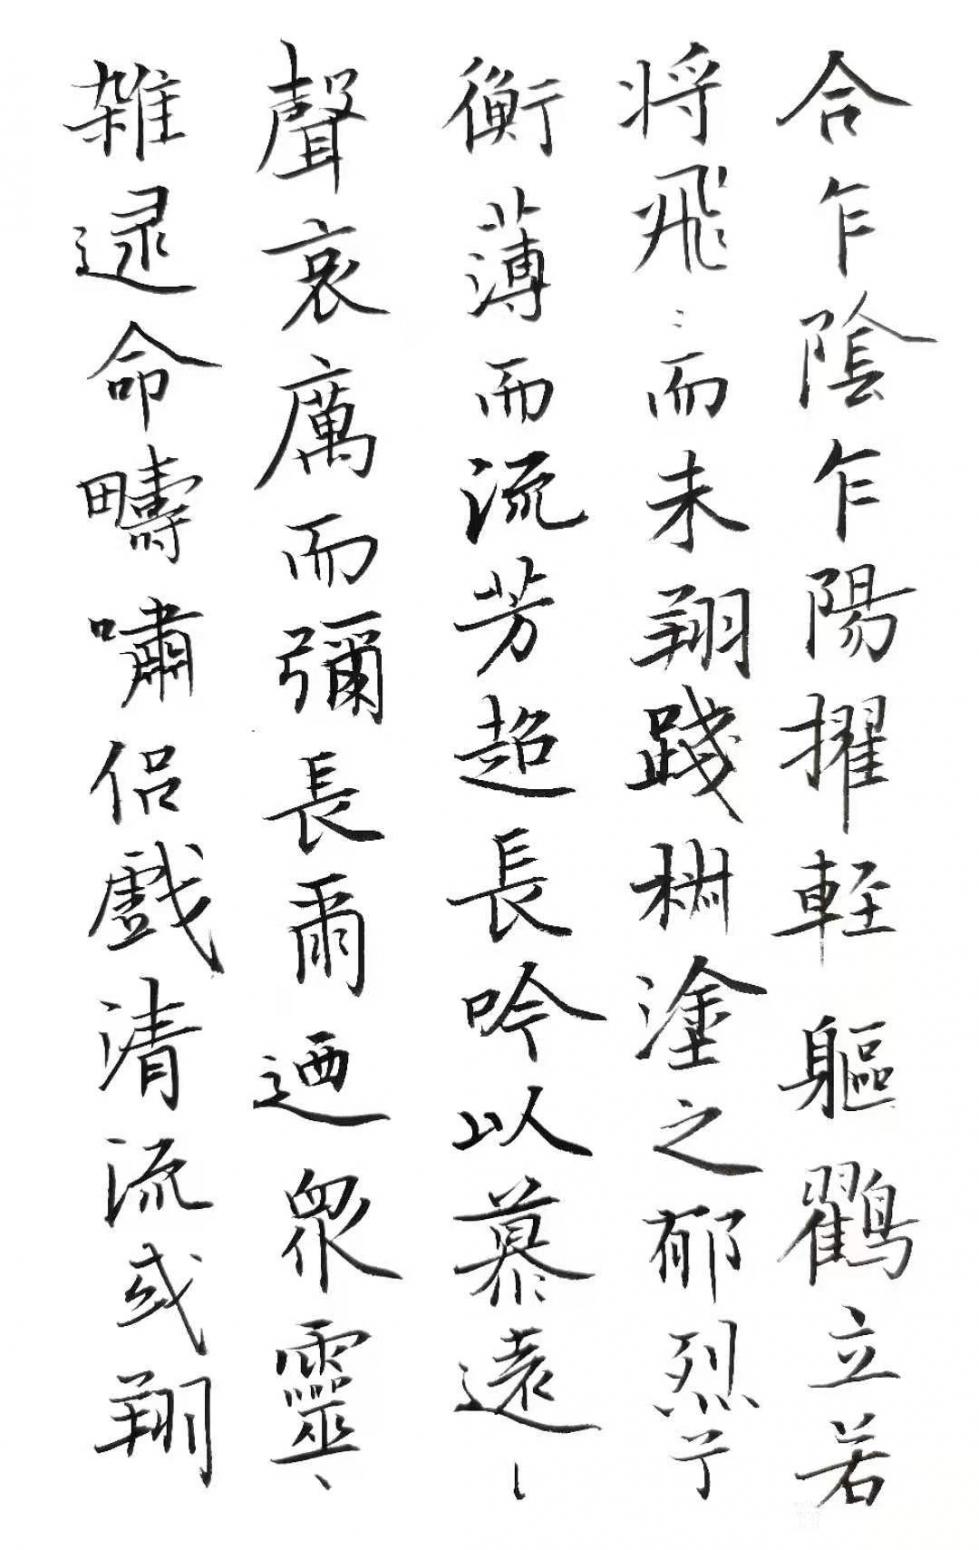 合乍陰乍陽擢輕軀鶴立若
将飛〻而未翔踐椒塗之郁烈亍
衡薄而流芳超長吟以慕遠
聲哀厲而彌長爾迺眾靈
雜遝命疇嘯侶戲清流或翔